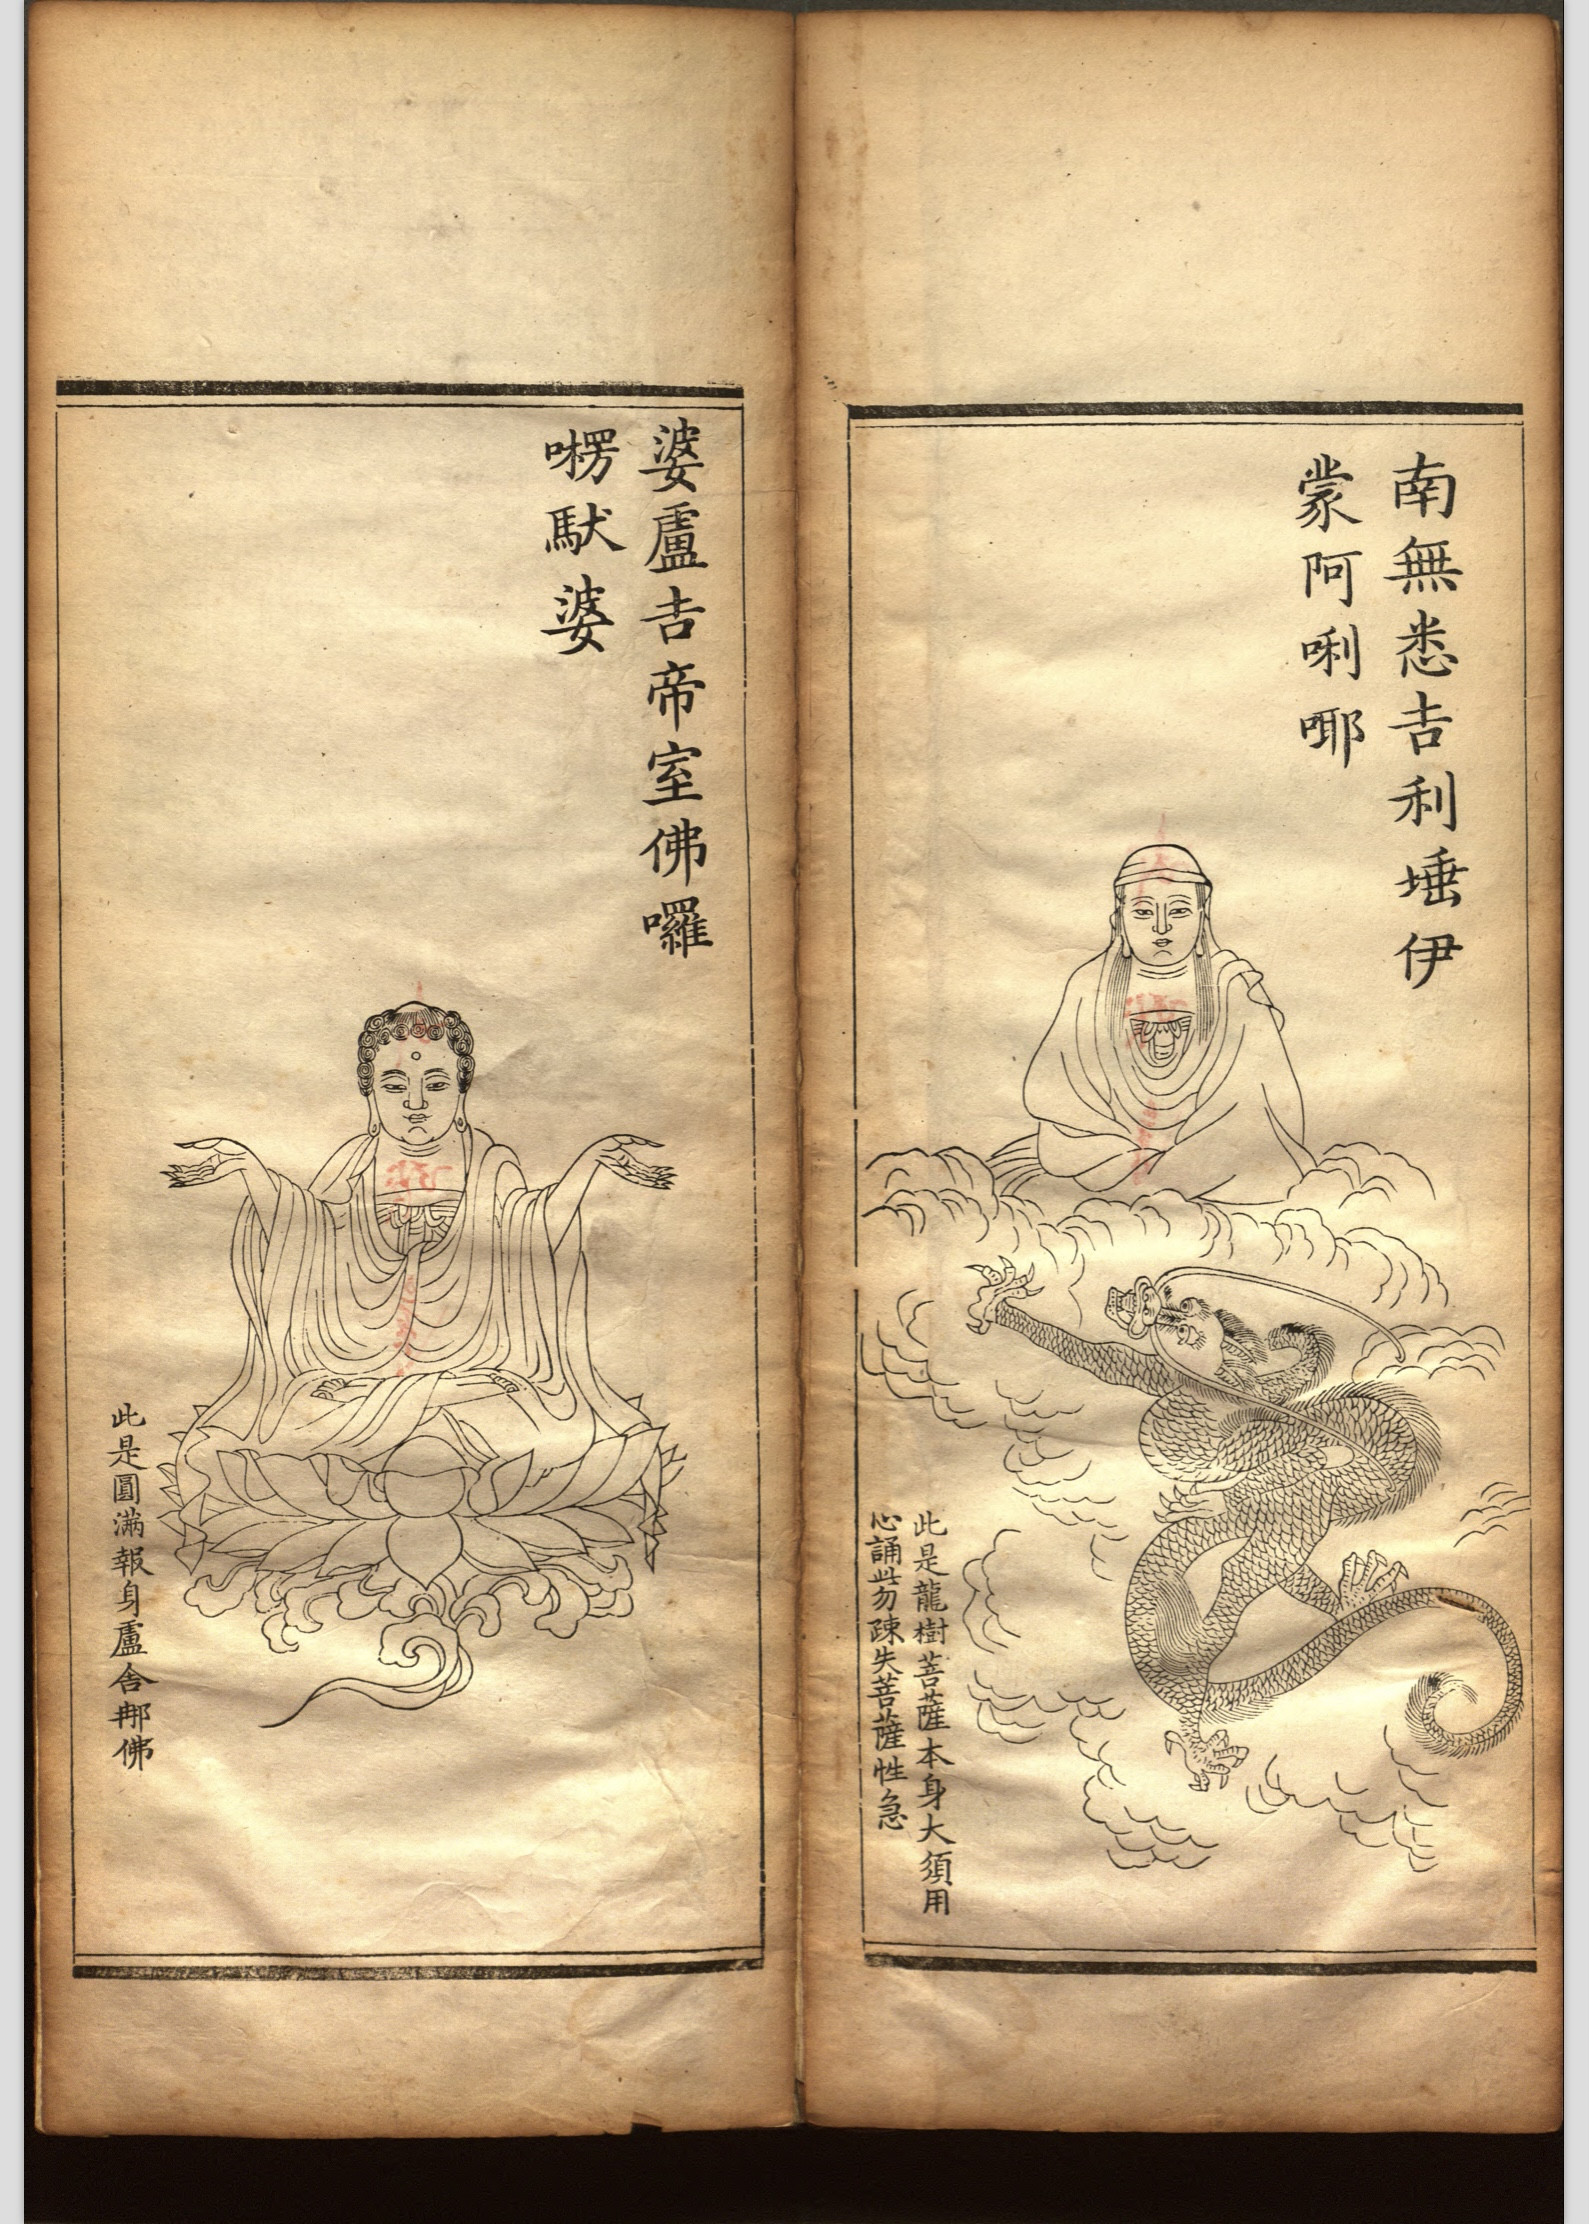 南無悉吉利埵伊
蒙阿唎㖿
此是龍樹菩薩本身大須用
心誦此勿疎失菩薩性急
婆盧吉帝室佛囉
㘄䭾婆
此是圓滿報身盧舍那佛